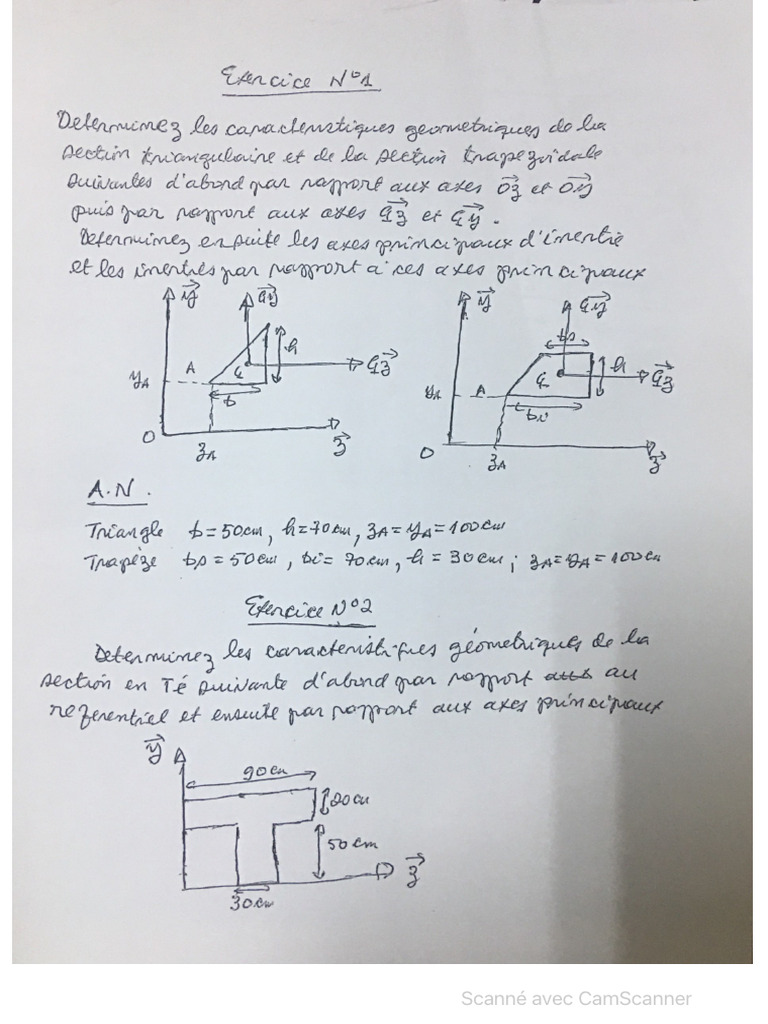 Exercice N°1
Determinez les caracteristiques geometriques de la
section triangulaire et de la section trapezoidale
suivantes d'abord par rapport aux axes Oz et Oy
puis par rapport aux axes Gz et Gy.
Determinez ensuite les axes principaux d'inertie
et les inerties par rapport a ces axes principaux
y Gy y Gy
bs
A G h Gz A G h Gz
yA b yA bi
O zA z O zA z
A.N.
Triangle b=50cm, h=70cm, zA=yA=100cm
Trapèze bs=50cm, bi=70cm, h=30cm; zA=yA=100cm
Exercice N°2
Determinez les caracteristiques géometriques de la
section en Té suivante d'abord par rapport au
referentiel et ensuite par rapport aux axes principaux
y
90cm
20cm
50cm
z
30cm
Scanné avec CamScanner